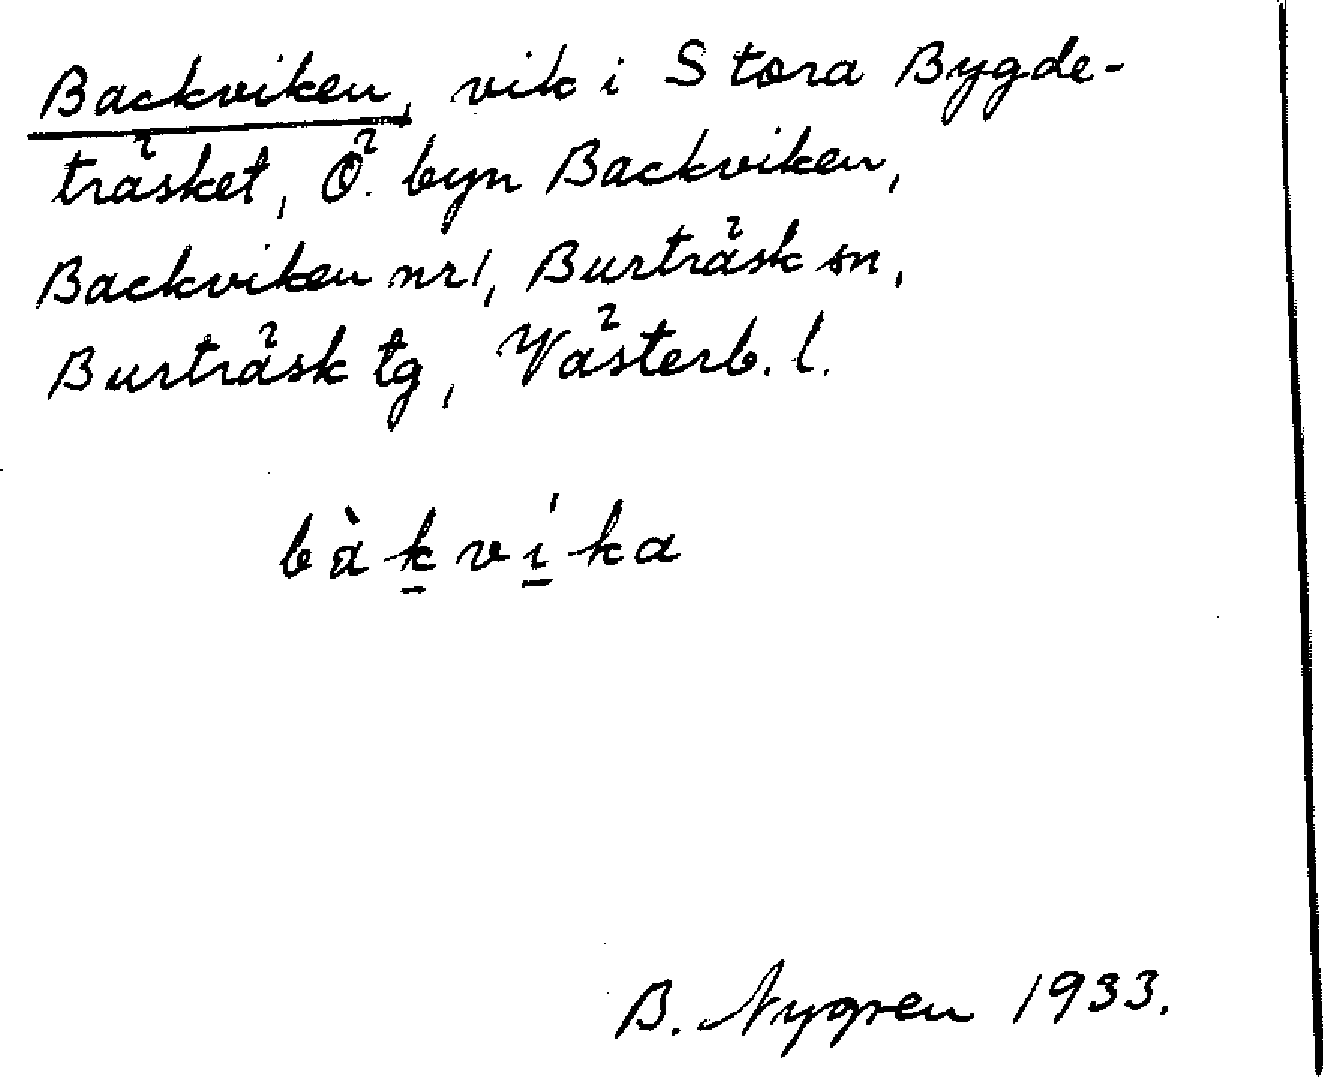 Backviken, vik i Stora Bygde-
träsket, Ö. byn Backviken,
Backviken nr 1, Burträsk sn,
Burträsk tg, Västerb. l.
bàk̲ví̲ka
B. Nygren 1933.